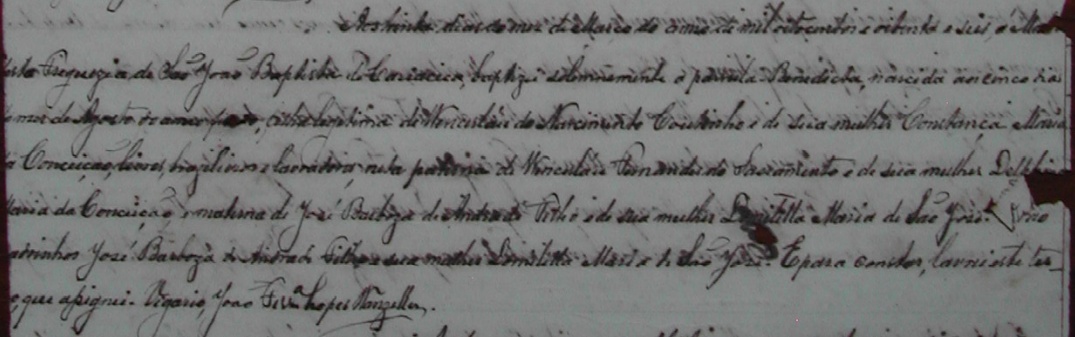 Aos trinta dias do mez de Março do anno de mil oitocentos e oitenta e seis, n'esta
Freguezia de São João Baptista de Cariacica, baptizei solemnemente a parvula Benedicta, nascida aos cinco dias
mez de Agosto do anno, filha legitima de Wencesláo do Nascimento Coutinho e de sua mulher Constança Maria
Conceição, livres, brazileiros e lavradores, neta paterna de Wencesláo Fernandes do Sacramento e de sua mulher Delphina
Maria da Conceição, e materna de José Barboza de Andrade Filho e de sua mulher Domitilla Maria de São José. Forão
adrinhos José Barboza de Andrade Filho e sua mulher Domitilla Maria de São José. E para constar, lavrei este ter-
o, que assignei. Vigario, João Ferra Lopes Wanzeller.